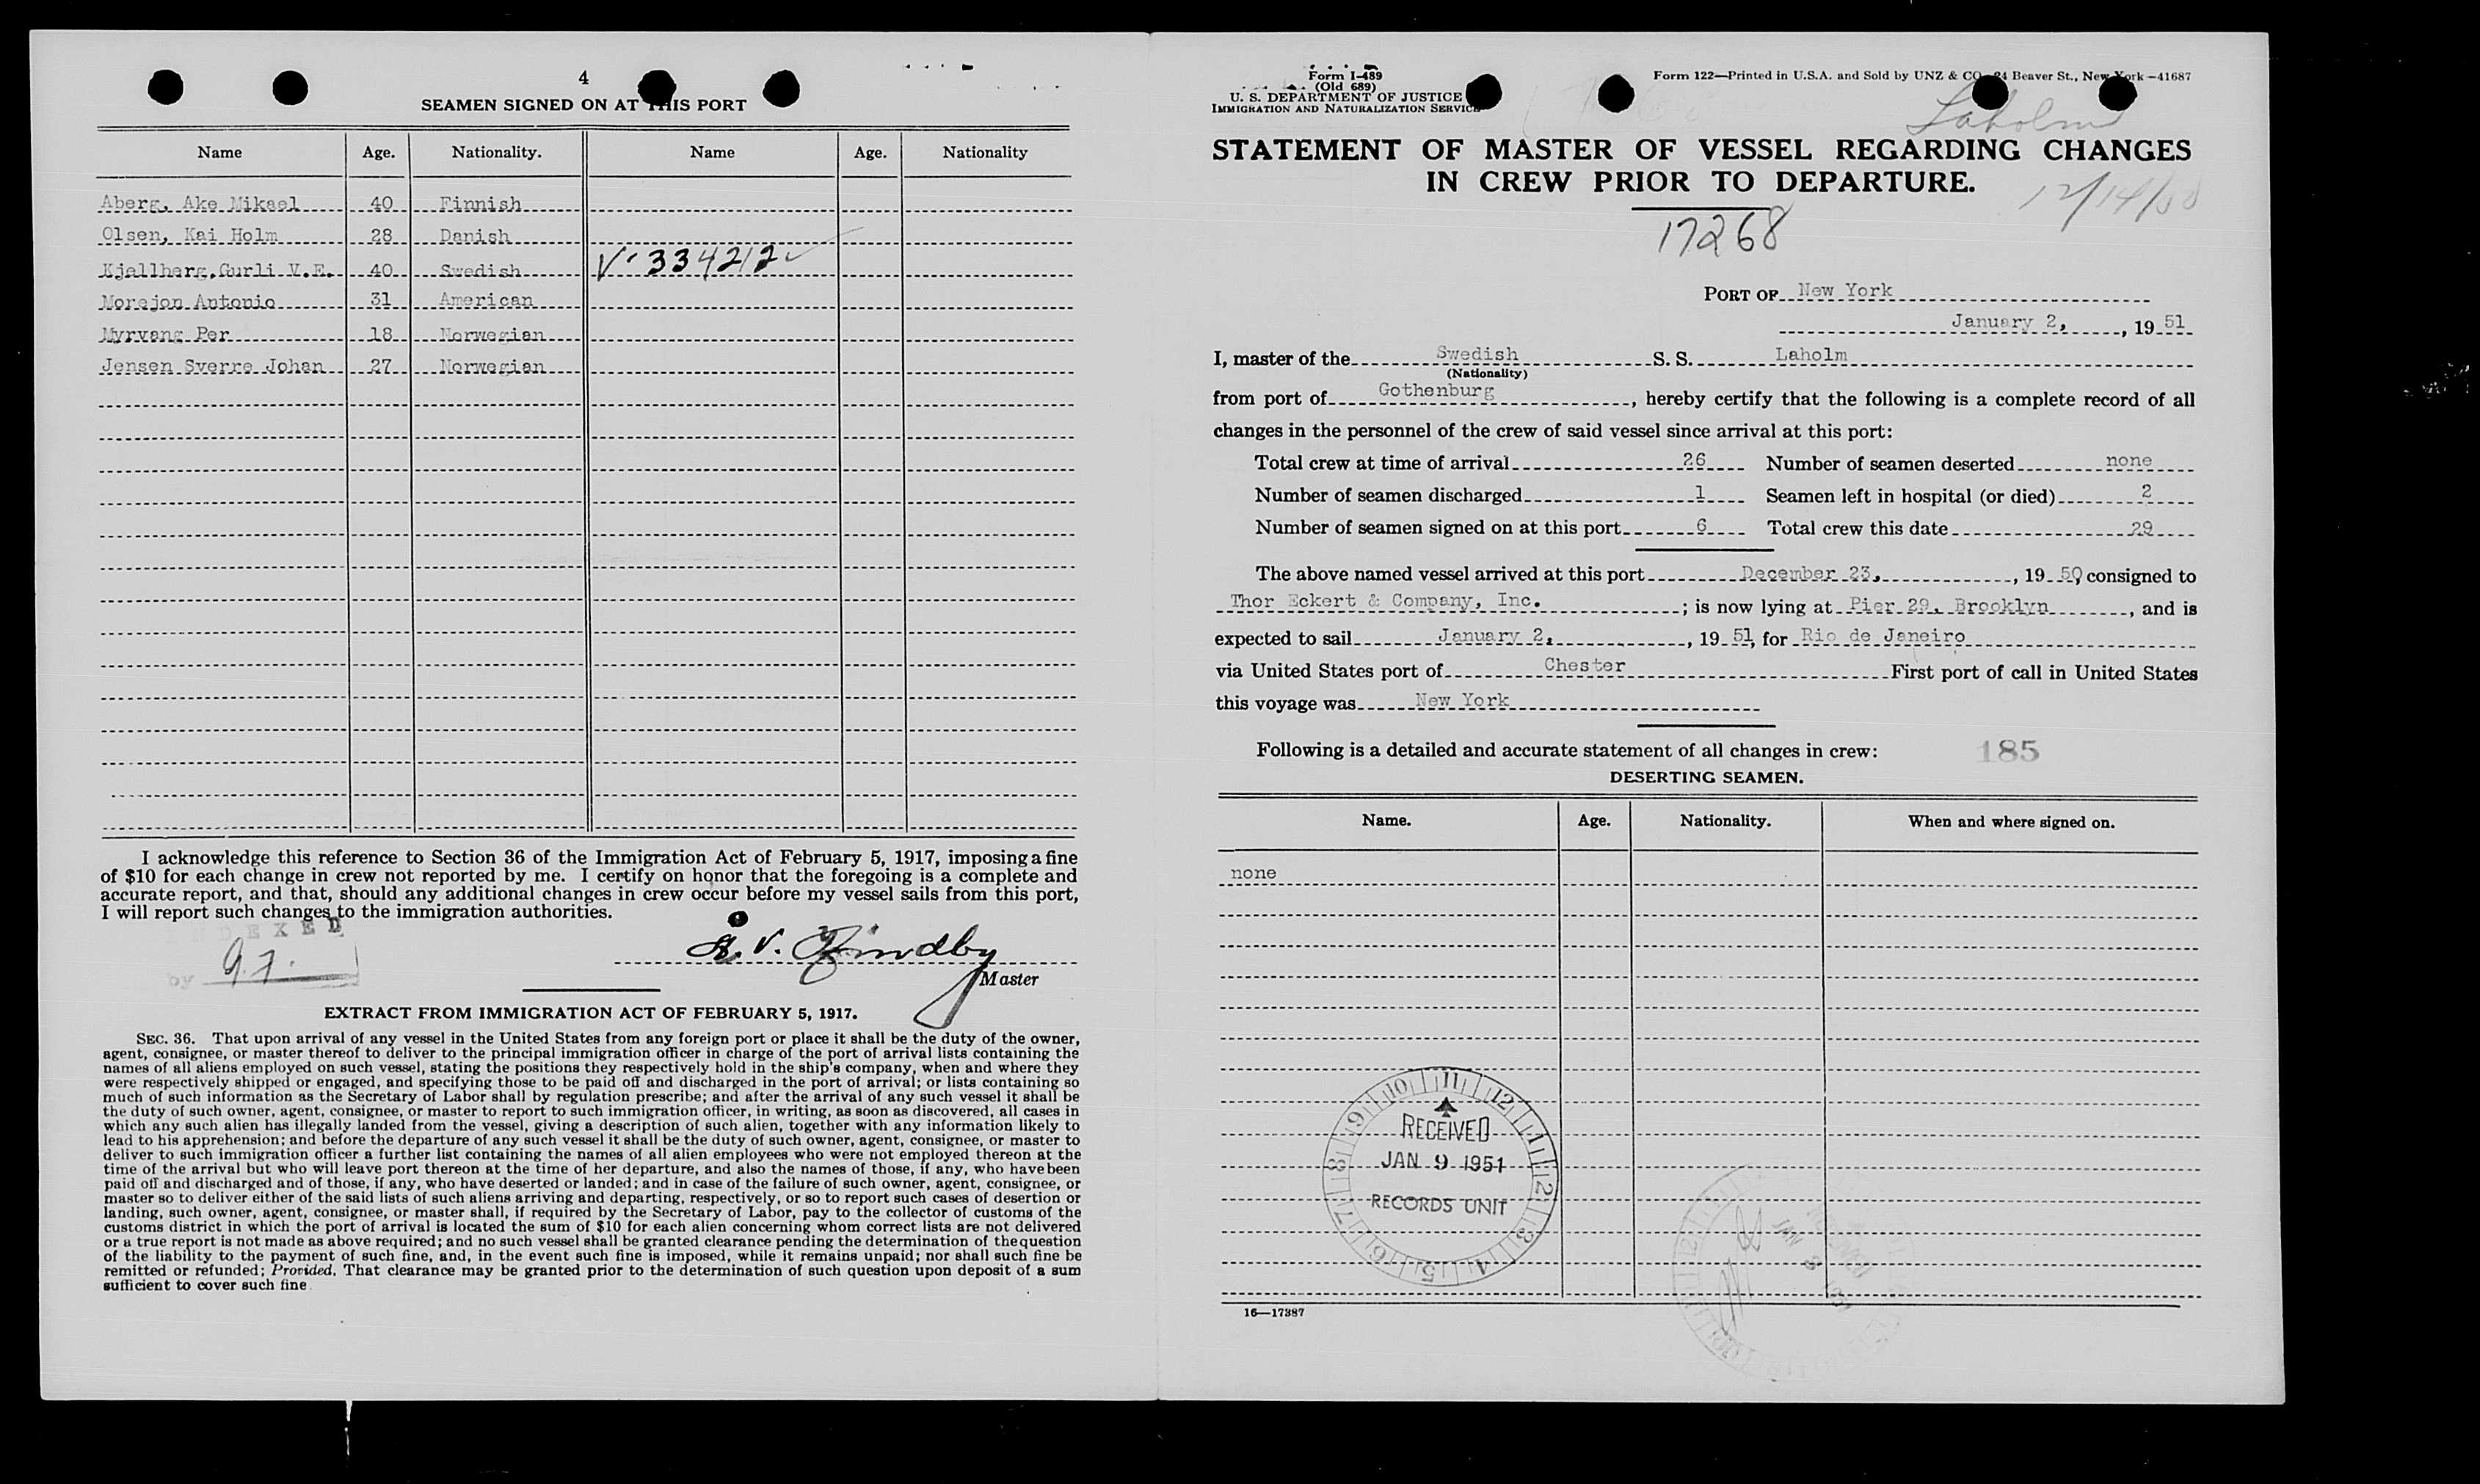 4
SEAMEN SIGNED ON AT THIS PORT
Name Age. Nationality. Name Age. Nationality
Aberg, Ake Mikael 40 Finnish
Olsen, Kai Holm 28 Danish
Kjellberg, Gurli V.E. 40 Swedish V-334212
Morejon Antonio 31 American
Myrvang Per 18 Norwegian
Jensen Sverre Johan 27 Norwegian
I acknowledge this reference to Section 36 of the Immigration Act of February 5, 1917, imposing a fine
of $10 for each change in crew not reported by me. I certify on honor that the foregoing is a complete and
accurate report, and that, should any additional changes in crew occur before my vessel sails from this port,
I will report such changes to the immigration authorities.
INDEXED
by
Master
EXTRACT FROM IMMIGRATION ACT OF FEBRUARY 5, 1917.
SEC. 36. That upon arrival of any vessel in the United States from any foreign port or place it shall be the duty of the owner,
agent, consignee, or master thereof to deliver to the principal immigration officer in charge of the port of arrival lists containing the
names of all aliens employed on such vessel, stating the positions they respectively hold in the ship's company, when and where they
were respectively shipped or engaged, and specifying those to be paid off and discharged in the port of arrival; or lists containing so
much of such information as the Secretary of Labor shall by regulation prescribe; and after the arrival of any such vessel it shall be
the duty of such owner, agent, consignee, or master to report to such immigration officer, in writing, as soon as discovered, all cases in
which any such alien has illegally landed from the vessel, giving a description of such alien, together with any information likely to
lead to his apprehension; and before the departure of any such vessel it shall be the duty of such owner, agent, consignee, or master to
deliver to such immigration officer a further list containing the names of all alien employees who were not employed thereon at the
time of the arrival but who will leave port thereon at the time of her departure, and also the names of those, if any, who have been
paid off and discharged and of those, if any, who have deserted or landed; and in case of the failure of such owner, agent, consignee, or
master so to deliver either of the said lists of such aliens arriving and departing, respectively, or so to report such cases of desertion or
landing, such owner, agent, consignee, or master shall, if required by the Secretary of Labor, pay to the collector of customs of the
customs district in which the port of arrival is located the sum of $10 for each alien concerning whom correct lists are not delivered
or a true report is not made as above required; and no such vessel shall be granted clearance pending the determination of the question
of the liability to the payment of such fine, and, in the event such fine is imposed, while it remains unpaid; nor shall such fine be
remitted or refunded; Provided, That clearance may be granted prior to the determination of such question upon deposit of a sum
sufficient to cover such fine.
Form I-489
(Old 689)
U. S. DEPARTMENT OF JUSTICE
IMMIGRATION AND NATURALIZATION SERVICE
Form 122—Printed in U.S.A. and Sold by UNZ & CO. 24 Beaver St., New York—41687
Laholm
STATEMENT OF MASTER OF VESSEL REGARDING CHANGES
IN CREW PRIOR TO DEPARTURE.
17268
PORT OF New York
January 2, , 19 51
I, master of the Swedish S. S. Laholm
(Nationality)
from port of Gothenburg , hereby certify that the following is a complete record of all
changes in the personnel of the crew of said vessel since arrival at this port:
Total crew at time of arrival 26 Number of seamen deserted none
Number of seamen discharged 1 Seamen left in hospital (or died) 2
Number of seamen signed on at this port 6 Total crew this date 29
The above named vessel arrived at this port December 23, , 19 50, consigned to
Thor Eckert & Company, Inc. ; is now lying at Pier 29, Brooklyn , and is
expected to sail January 2, , 19 51, for Rio de Janeiro
via United States port of Chester First port of call in United States
this voyage was New York
Following is a detailed and accurate statement of all changes in crew: 185
DESERTING SEAMEN.
Name. Age. Nationality. When and where signed on.
none
RECEIVED
JAN 9 1951
RECORDS UNIT
16—17387